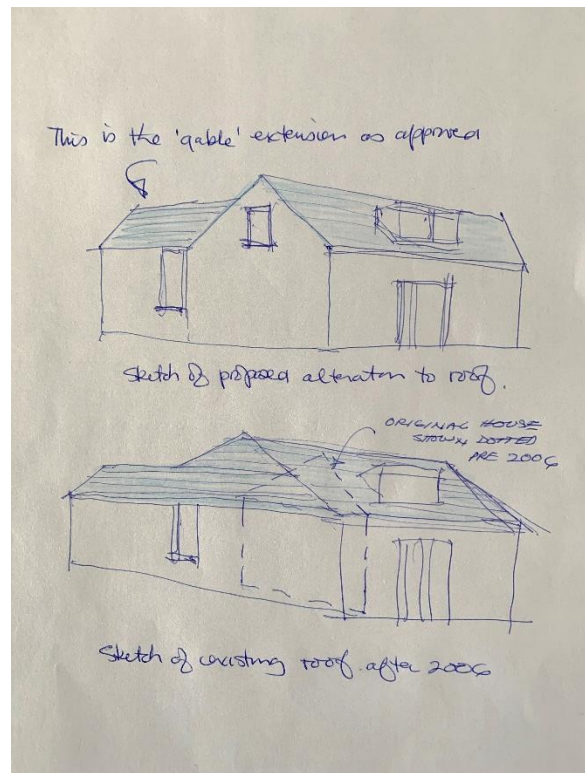 This is the 'gable' extension as approved
Sketch of proposed alteration to roof.
ORIGINAL HOUSE
SHOWN DOTTED
PRE 2006
Sketch of existing roof after 2006